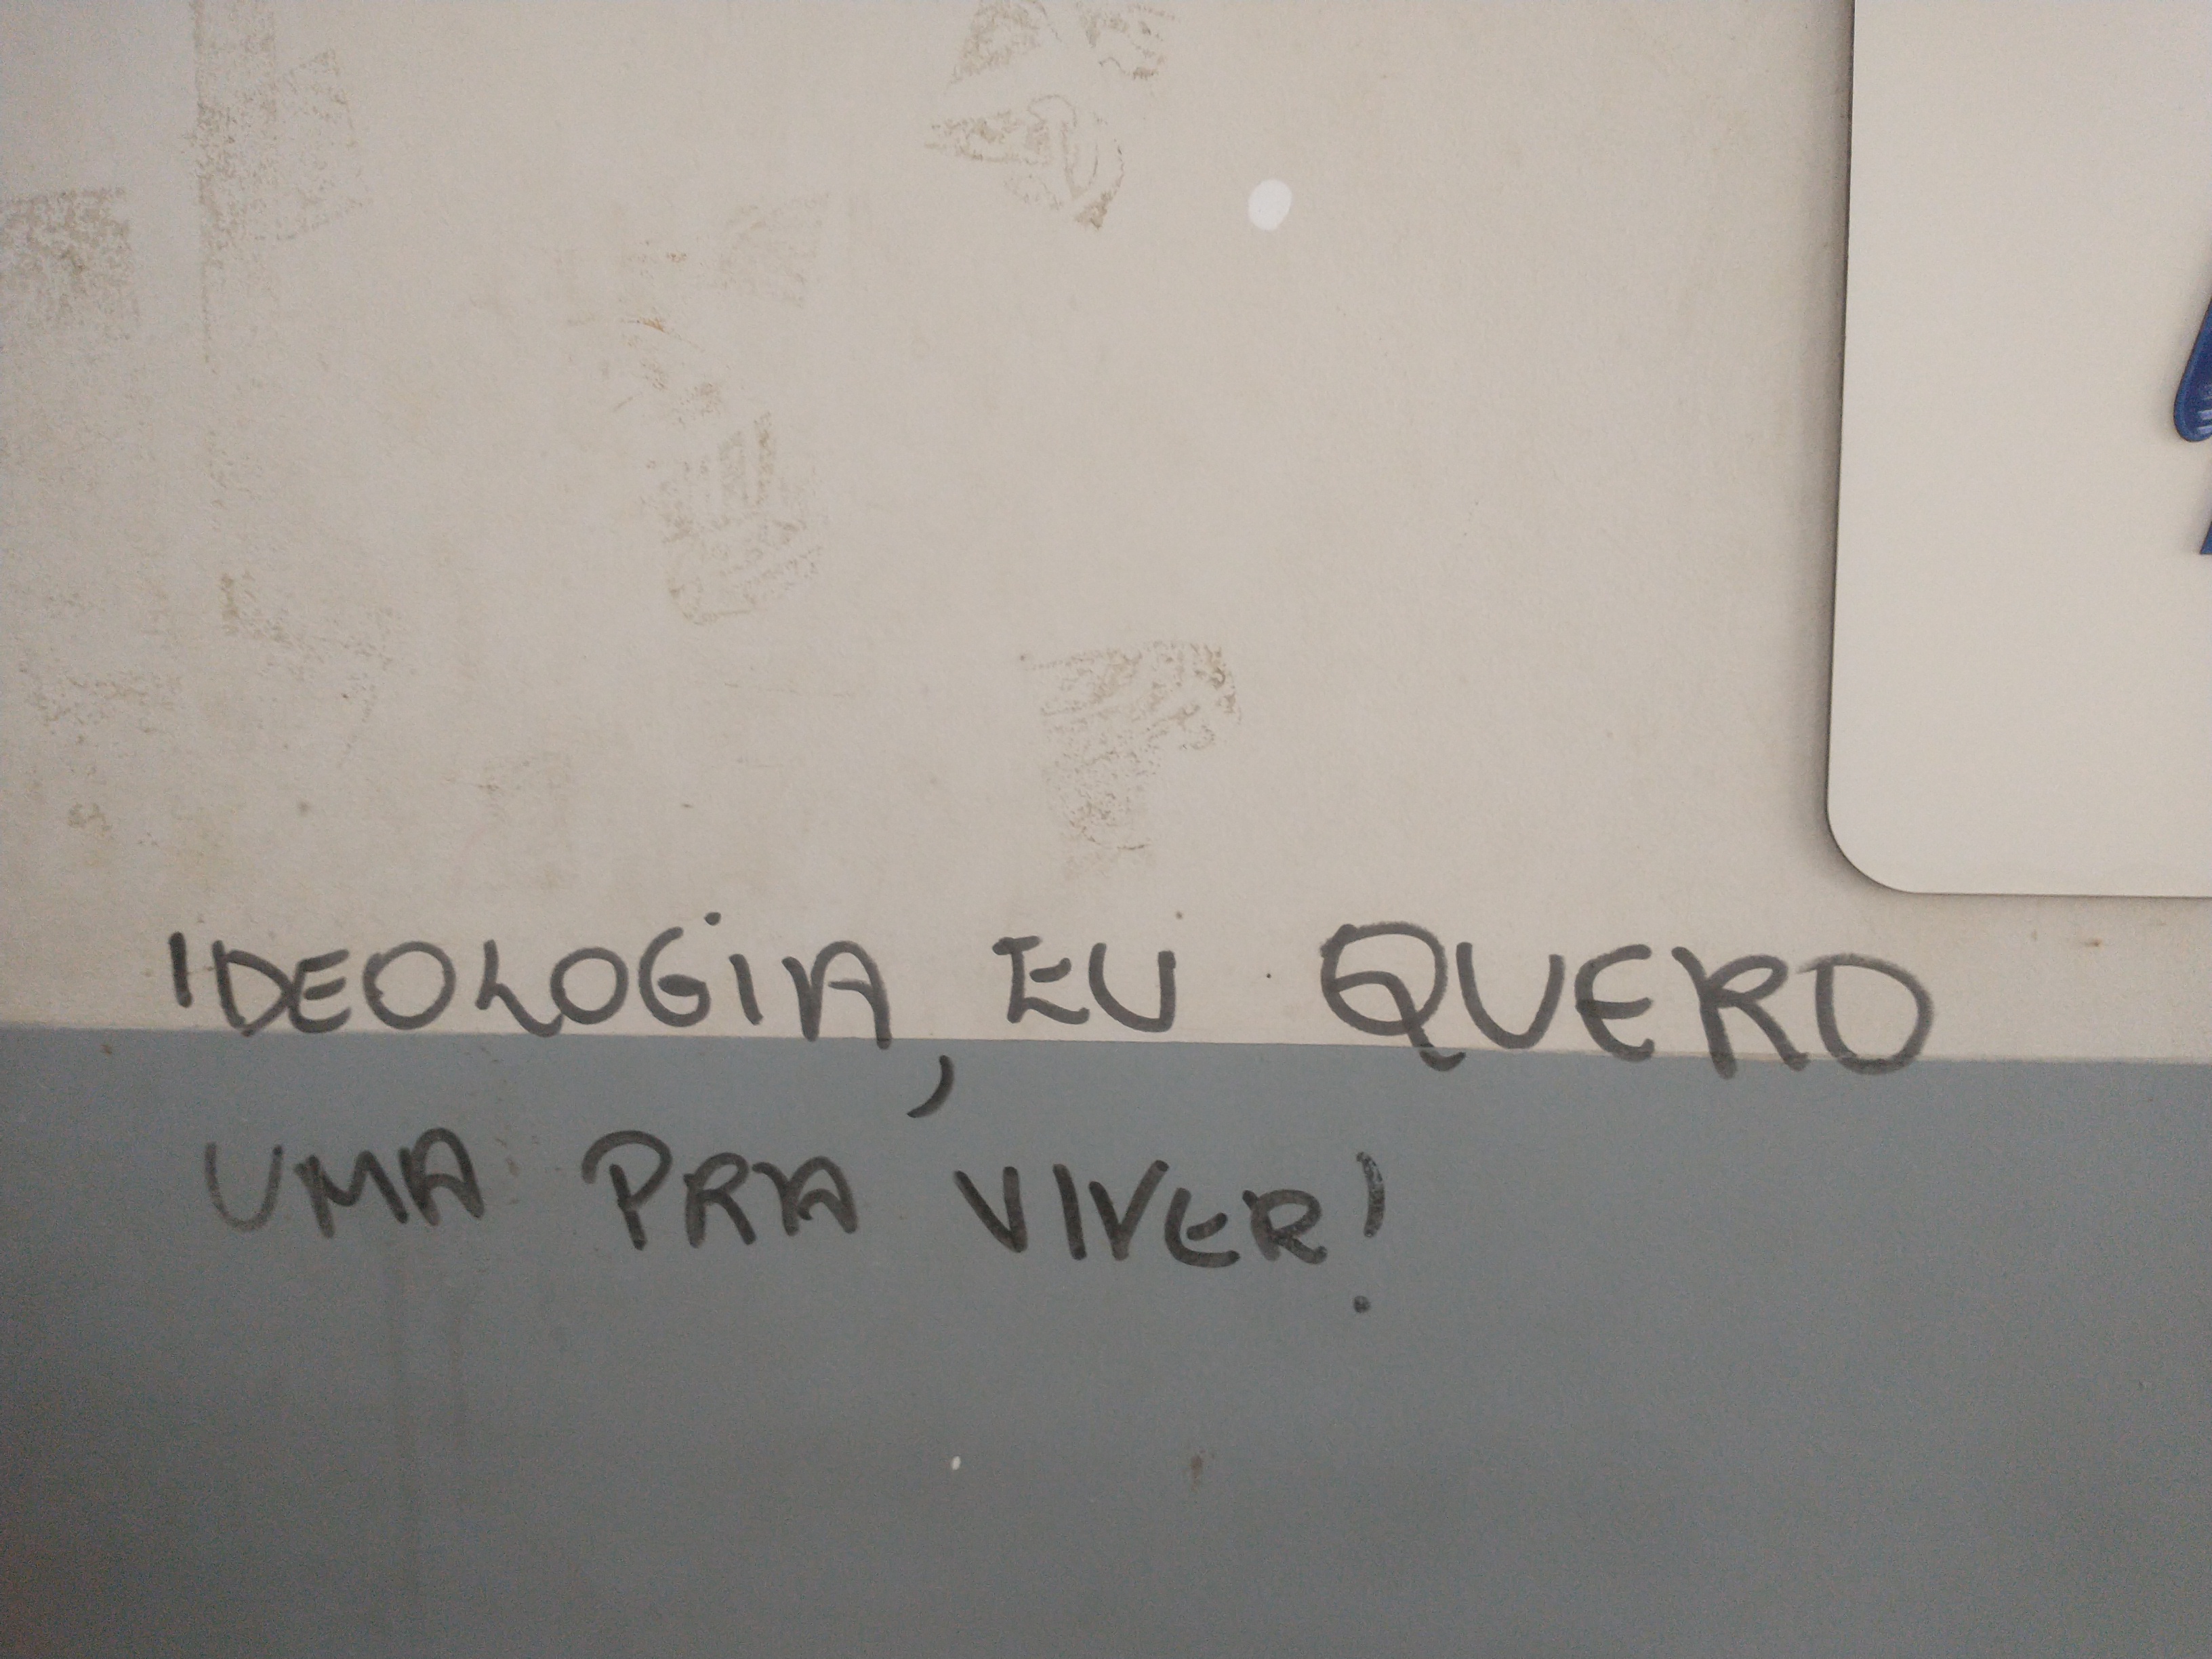 IDEOLOGIA, EU QUERO
UMA PRA VIVER!